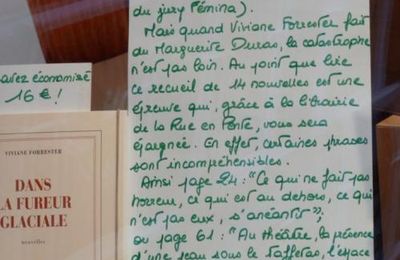 du jury Fémina).
Mais quand Viviane Forrester fait
du Marguerite Duras, la catastrophe
n'est pas loin. Au point que lire
ce recueil de 14 nouvelles est une
épreuve qui, grâce à la librairie
de la Rue en Pente, vous sera
épargnée. En effet, certaines phrases
sont incompréhensibles.
Ainsi page 24 : "Ce qui ne fait pas
horreur, ce qui est au dehors, ce qui
n'est pas eux, s'anéantir",
ou page 61 : "Au théâtre, la présence
d'une peau sous le taffetas, l'espace
avez économisé
16 € !
VIVIANE FORRESTER
DANS
LA FUREUR
GLACIALE
nouvelles